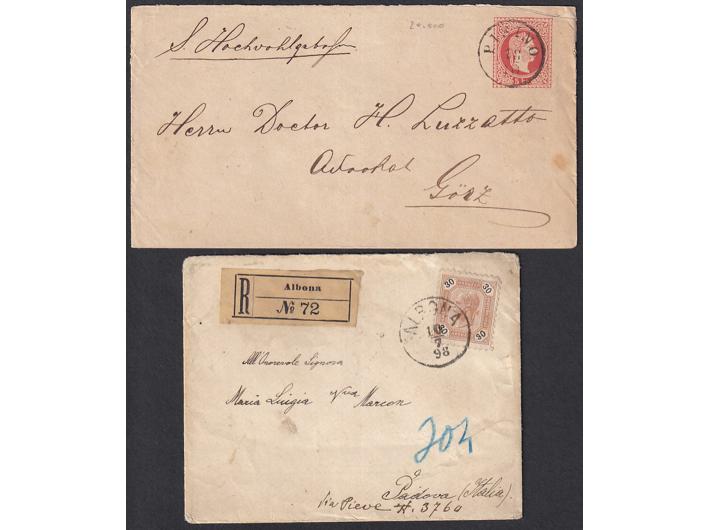 20.000
S. Hochwohlgeboren
Herrn Doctor H. Luzzatto
Advokat
Görz
R
Albona
No 72
30 30
30
ALBONA
7
98
All'Onorevole Signora
Maria Luigia Vva Marcon
204
a
Padova (Italia).
Via Pieve N. 3760